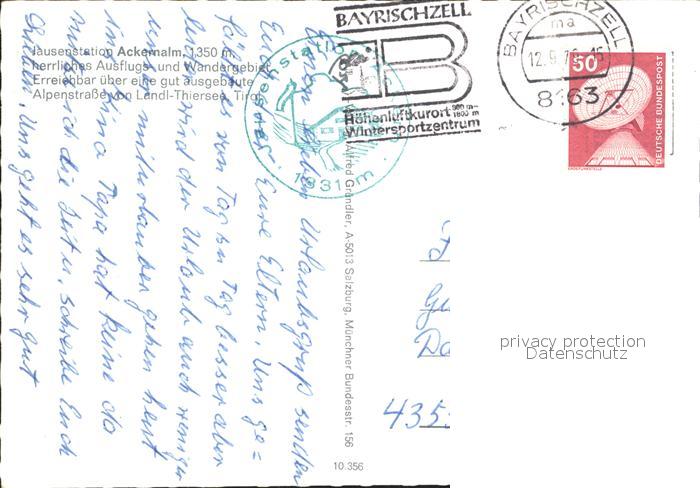 Jausenstation Ackernalm, 1350 m
herrliches Ausflugs- und Wandergebiet
Erreichbar über eine gut ausgebaute
Alpenstraße von Landl-Thiersee, Tirol
BAYRISCHZELL
B
Höhenluftkurort 800 m–
1800 m
Wintersportzentrum
BAYRISCHZELL
ma
12.9.
8163
50
DEUTSCHE BUNDESPOST
ERDEFUNKSTELLE
1831 m
Alfred Gründler, A-5013 Salzburg, Münchner Bundesstr. 156
10.356
Urlaubsgruß senden
Euch Eure Eltern. Uns ge=
fällt es von Tag zu Tag besser aber
leider wird der Urlaub auch weniger
gehen heut
ins Kino Papa hat keine
die Zeit u. schreibe Euch
Uns geht es sehr gut
435
privacy protection
Datenschutz